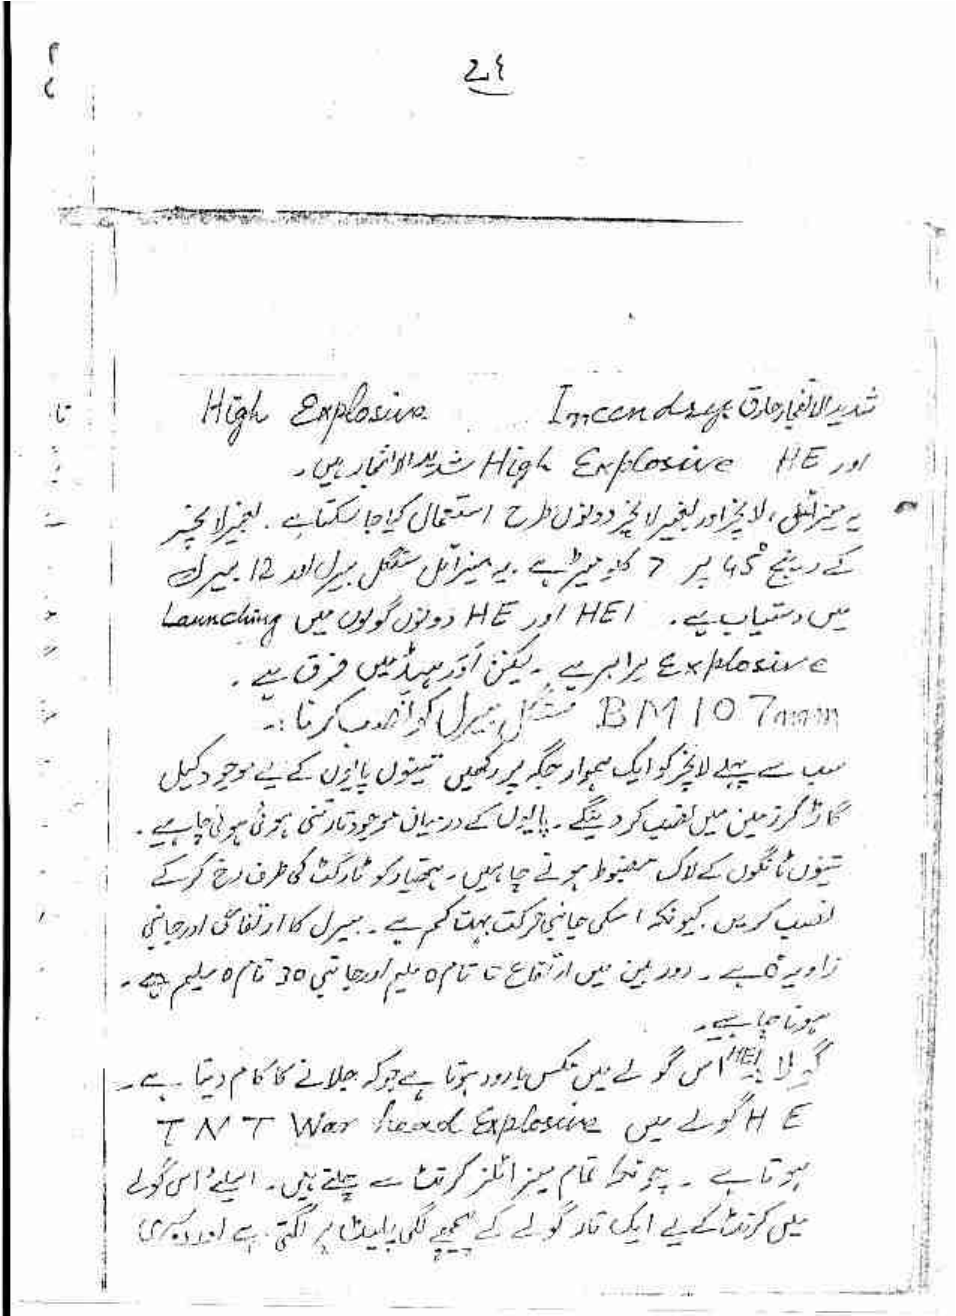 High Explosive Incendrey شدید الانفجار حارق
اور HE High Explosive شدید الانفجار ہیں۔
یہ میزائل، لانچر اور بغیر لانچر دونوں طرح استعمال کیا جا سکتا ہے۔ بغیر لانچر
کے رینج 45° پر 7 کلو میٹر ہے۔ یہ میزائل سنگل بیرل اور 12 بیرل
میں دستیاب ہے۔ HEI اور HE دونوں گولوں میں Launching
Explosive برابر ہے۔ لیکن ہیڈ میں فرق ہے۔
BM 107mm سنگل بیرل کو نصب کرنا:۔
سب سے پہلے لانچر کو ایک ہموار جگہ پر رکھیں تینوں پایوں کے لیے موجود کیل
گاڑ کر زمین میں نصب کر دینگے۔ پایوں کے درمیان موجود تار تنی ہوئی ہونی چاہیے۔
تینوں ٹانگوں کے لاک مضبوط ہونے چاہیں۔ ہتھیار کو ٹارگٹ کی طرف رخ کر کے
نصب کریں کیونکہ اسکی جانبی حرکت بہت کم ہے۔ بیرل کا ارتفاعی اور جانبی
زاویہ ہے۔ دوربین میں ارتفاع اور جانبی 30 ہے۔
ہونا چاہیے۔
گولا HEI اس گولے میں مکس بارود ہوتا ہے جو کہ جلانے کا کام دیتا ہے۔
HE گولے میں TNT War head Explosive
ہوتا ہے۔ چونکہ تمام میزائلز کرنٹ سے چلتے ہیں۔ اسلئے اس گولے
میں کرنٹ کے لیے ایک تار گولے کے پیچھے لگی پلیٹ پر لگتی ہے اور دوسری